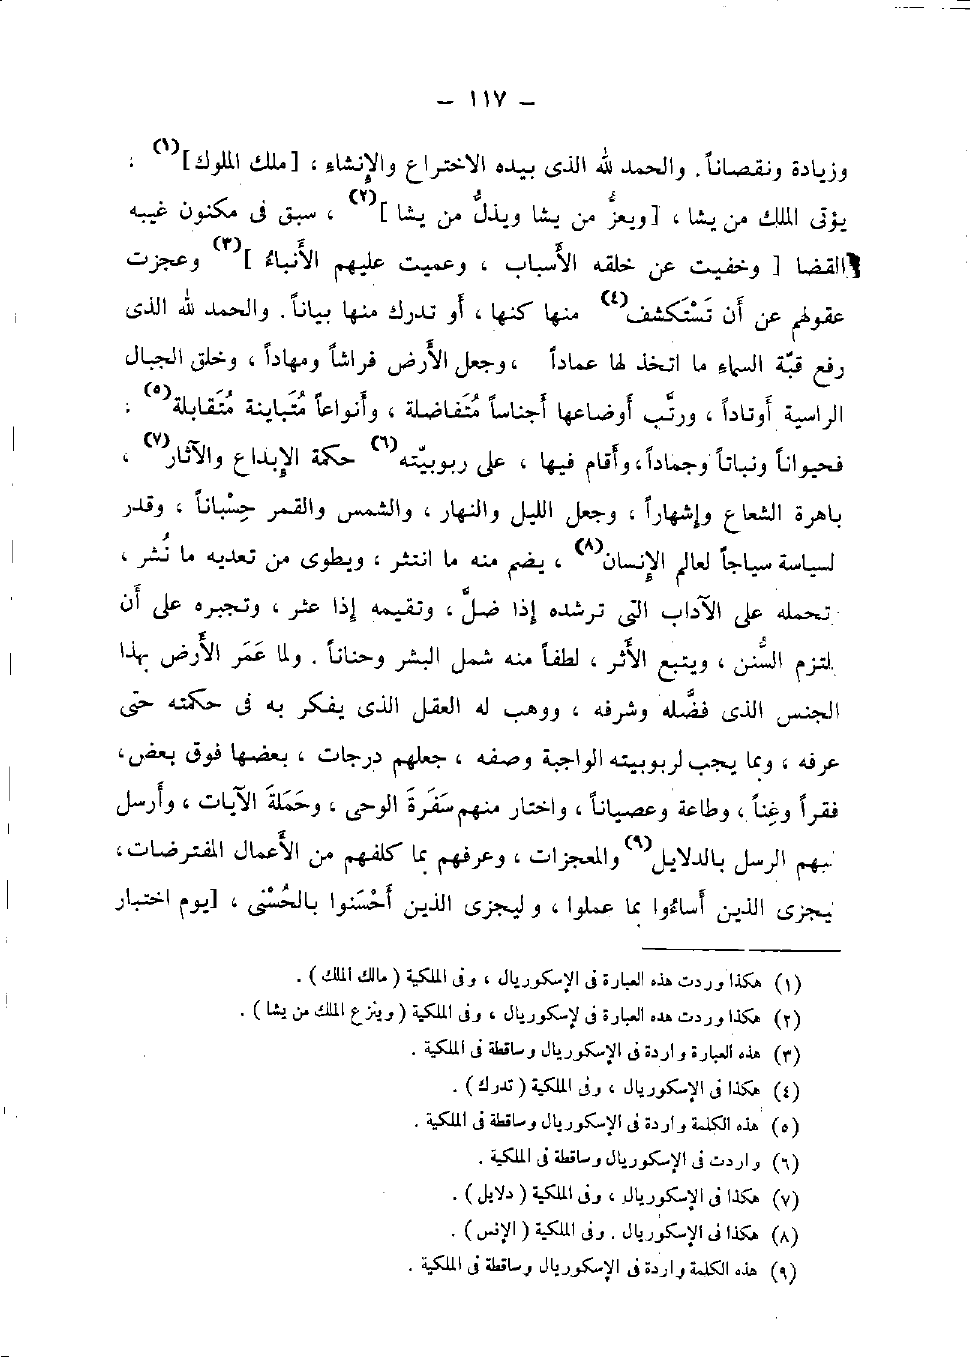 — ١١٧ —
وزيادة ونقصاناً. والحمد لله الذى بيده الاختراع والإنشاء ، [ملك الملوك](١) ،
يؤتى الملك من يشا ، [ويعزُّ من يشا ويذلُّ من يشا ](٢) ، سبق فى مكنون غيبه
القضا [ وخفيت عن خلقه الأسباب ، وعميت عليهم الأنباءُ ](٣) وعجزت
عقولهم عن أن تَسْتَكشف(٤) منها كنها ، أو تدرك منها بياناً. والحمد لله الذى
رفع قبّة السماء ما اتخذ لها عماداً ، وجعل الأرض فراشاً ومهاداً ، وخلق الجبال
الراسية أوتاداً ، ورتَّب أوضاعها أجناساً مُتَفاضلة ، وأنواعاً مُتَباينة مُتَقابلة(٥) :
فحيواناً ونباتاً وجماداً، وأقام فيها ، على ربوبيّته(٦) حكمة الإبداع والآثار(٧) ،
باهرة الشعاع وإشهاراً ، وجعل الليل والنهار ، والشمس والقمر حِسْباناً ، وقدر
لسياسة سياجاً لعالم الإنسان(٨) ، يضم منه ما انتثر ، ويطوى من تعديه ما نُشر ،
تحمله على الآداب التى ترشده إذا ضلَّ ، وتقيمه إذا عثر ، وتجبره على أن
يلتزم السُّنن ، ويتبع الأثر ، لطفاً منه شمل البشر وحناناً . ولما عَمَر الأرض بهذا
الجنس الذى فضَّله وشرفه ، ووهب له العقل الذى يفكر به فى حكمته حتى
عرفه ، وبما يجب لربوبيته الواجبة وصفه ، جعلهم درجات ، بعضها فوق بعض،
فقراً وغِناً ، وطاعة وعصياناً ، واختار منهم سَفَرَة الوحى ، وحَمَلَةَ الآيات ، وأرسل
فيهم الرسل بالدلايل(٩) والمعجزات ، وعرفهم بما كلفهم من الأعمال المفترضات،
ليجزى الذين أساءُوا بما عملوا ، وليجزى الذين أحْسَنوا بالحُسْنى ، [يوم اختبار
(١) هكذا وردت هذه العبارة فى الإسكوريال ، وفى الملكية ( مالك الملك ) .
(٢) هكذا وردت هذه العبارة فى لإسكوريال ، وفى الملكية ( وينزع الملك من يشا ) .
(٣) هذه العبارة واردة فى الإسكوريال وساقطة فى الملكية .
(٤) هكذا فى الإسكوريال ، وفى الملكية ( تدرك ) .
(٥) هذه الكلمة واردة فى الإسكوريال وساقطة فى الملكية .
(٦) واردت فى الإسكوريال وساقطة فى الملكية .
(٧) هكذا فى الإسكوريال ، وفى الملكية ( دلايل ) .
(٨) هكذا فى الإسكوريال . وفى الملكية ( الإنس ) .
(٩) هذه الكلمة واردة فى الإسكوريال وساقطة فى الملكية .